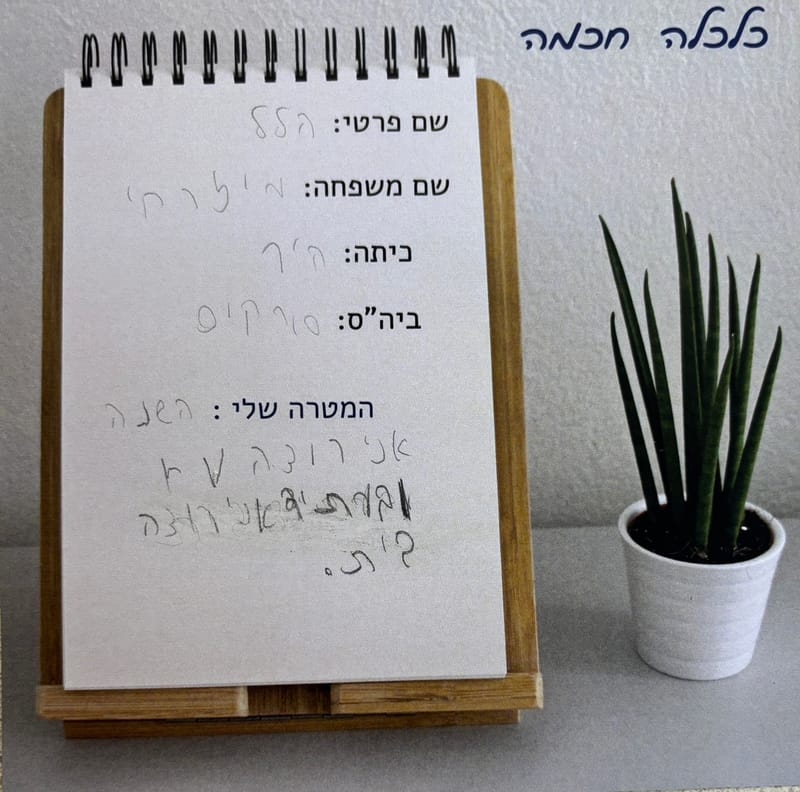 כלכלה חכמה
שם פרטי: הלל
שם משפחה: מיזרחי
כיתה:
ביה"ס: סורקיס
המטרה שלי : השנה
אני רוצה
ובעתיד אני רוצה
בית.